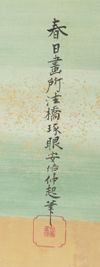 春日畫所法橋琢眼安倍仲起筆